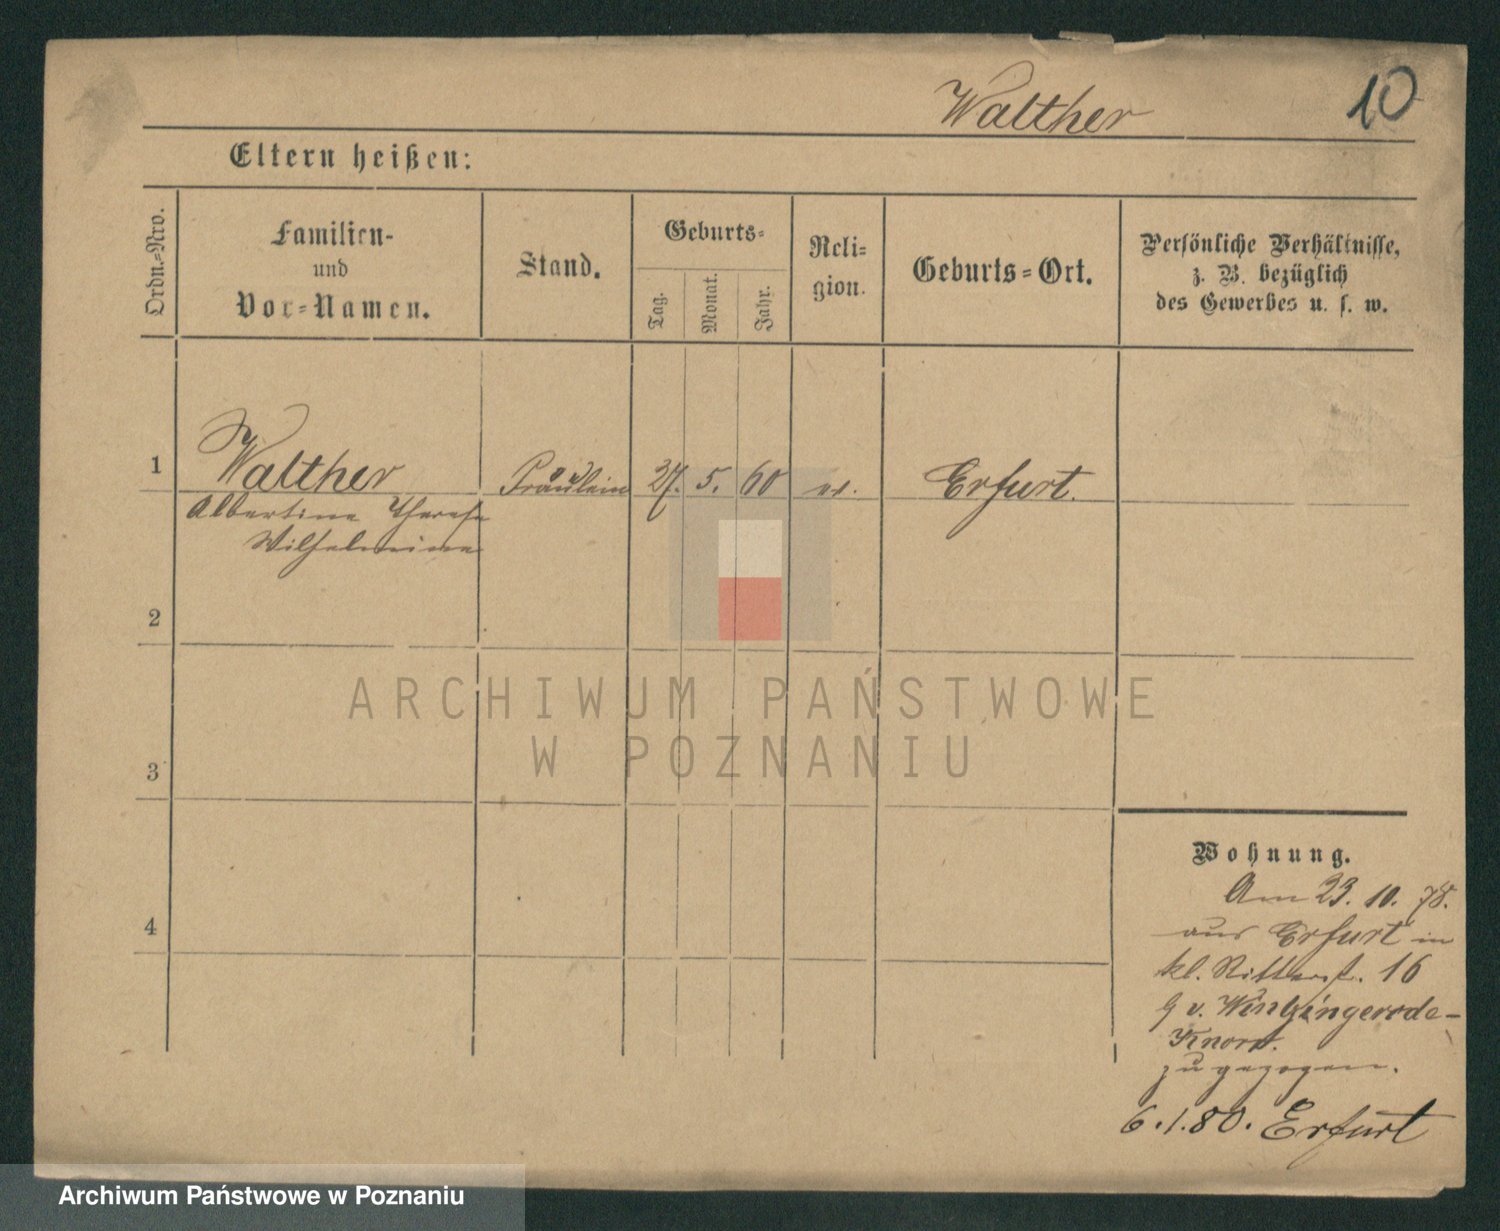 Walther
10
Eltern heißen:
Ordn.-Nro.
Familien-
und
Vor-Namen.
Stand.
Geburts-
Tag.
Monat.
Jahr.
Reli-
gion.
Geburts-Ort.
Persönliche Verhältnisse,
z. B. bezüglich
des Gewerbes u. s. w.
1
Walther
Albertine Therese
Wilhelmine
Fräulein
27. 5. 60
ev.
Erfurt.
2
3
4
ARCHIWUM PAŃSTWOWE
W POZNANIU
Wohnung.
Am 23. 10. 78.
aus Erfurt in
kl. Ritterst. 16
v. Wintzingerode-
Knorr.
zugezogen.
6.1.80. Erfurt
Archiwum Państwowe w Poznaniu